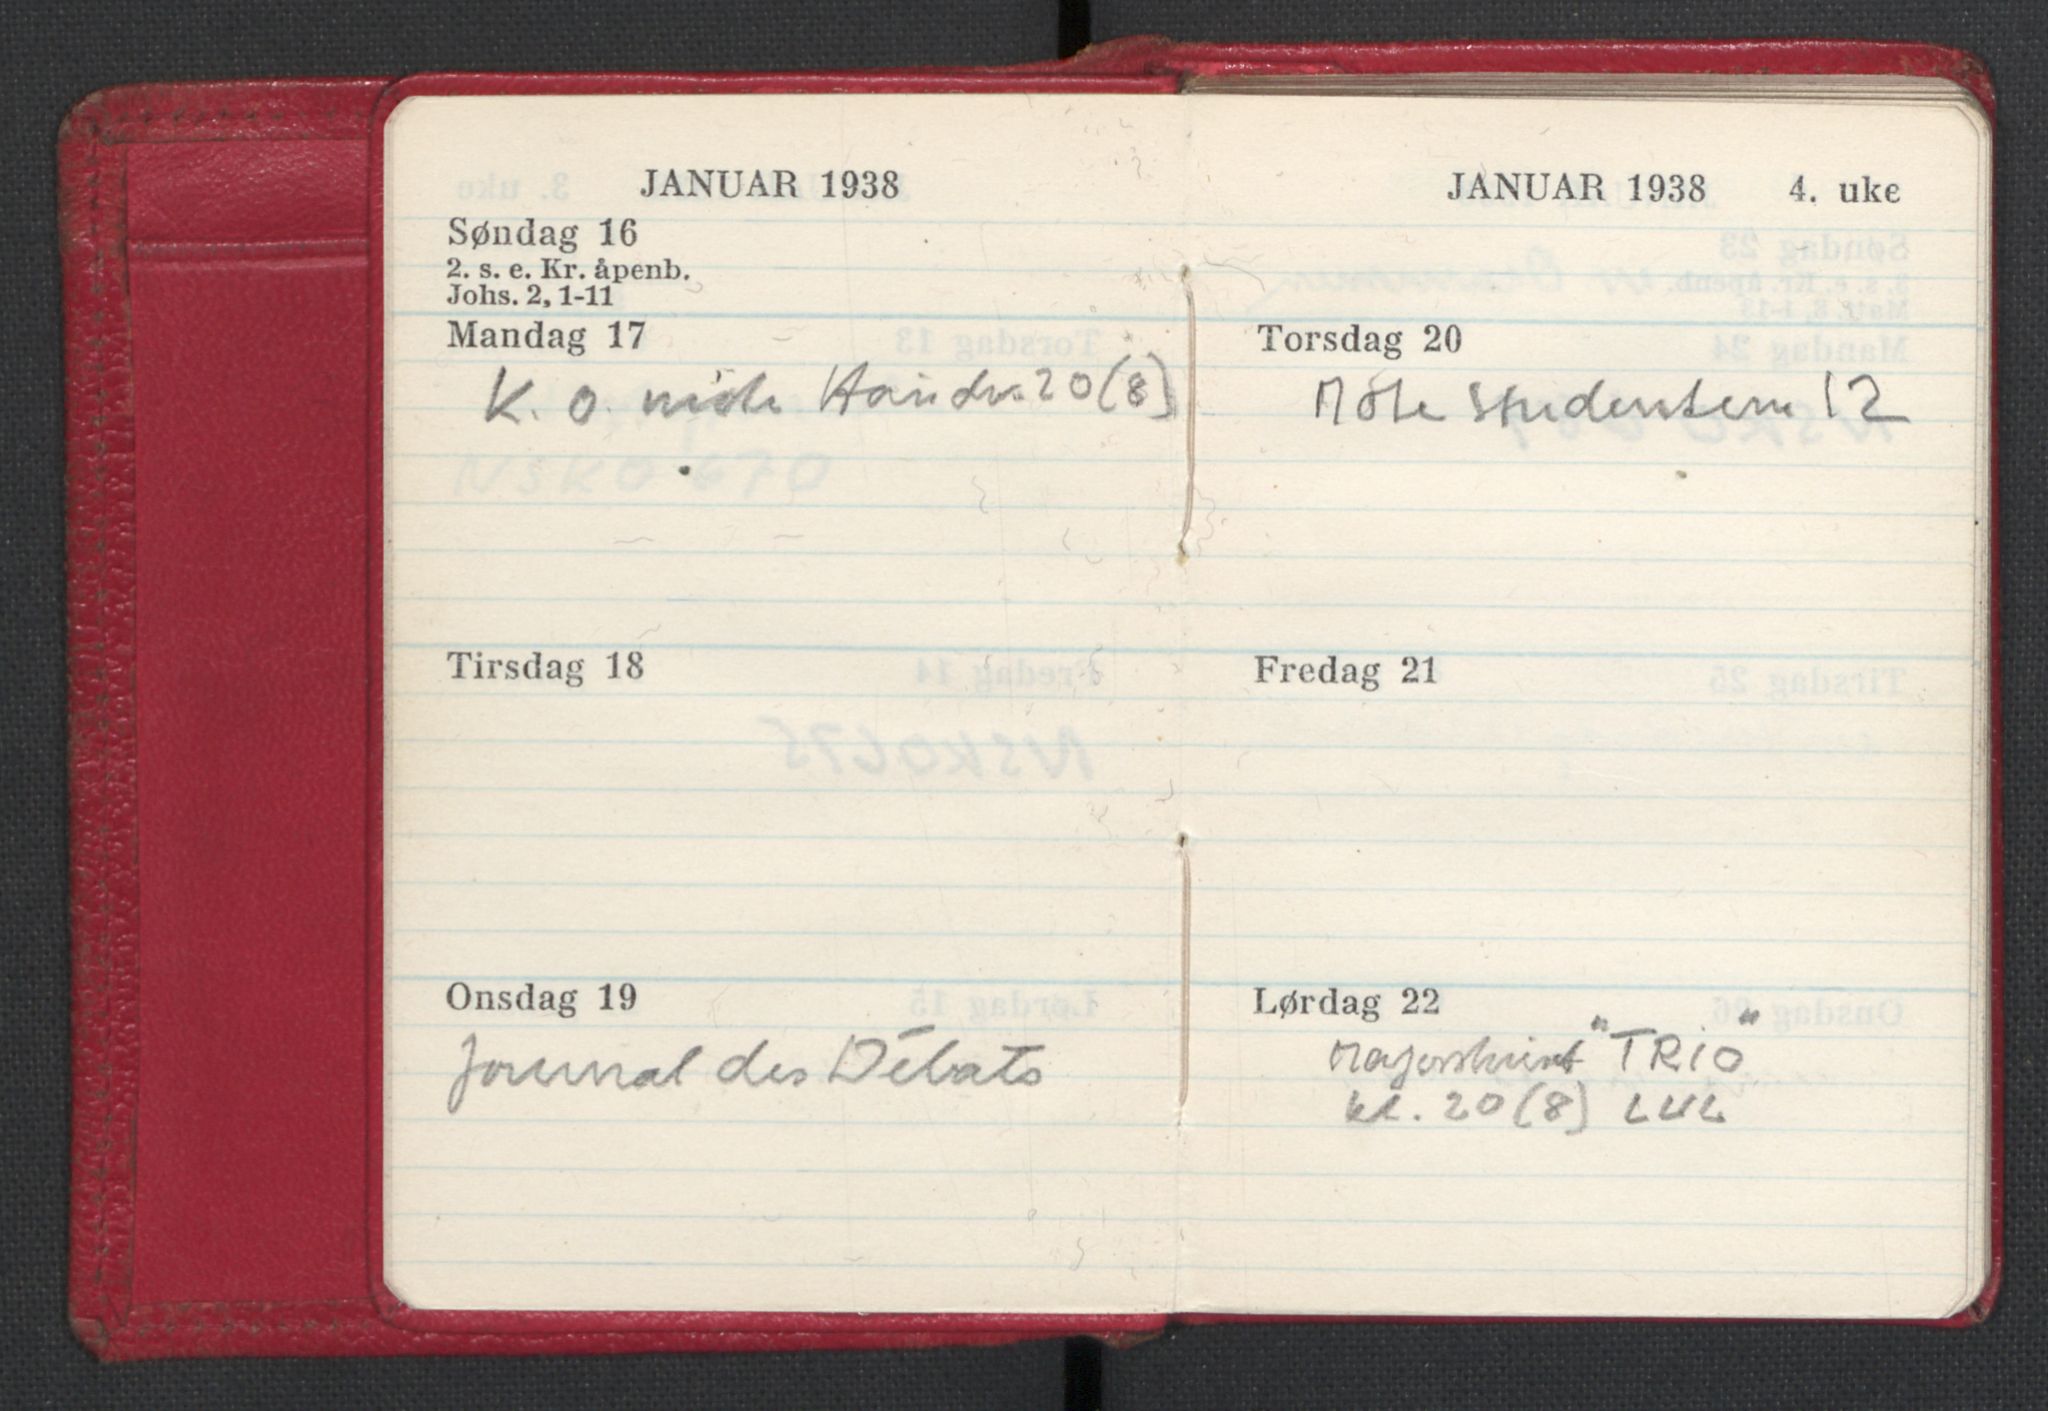 JANUAR 1938
Søndag 16
2. s. e. Kr. åpenb.
Johs. 2, 1-11
Mandag 17
K. O. 20 (8)
NSKO 670
Tirsdag 18
Onsdag 19
Journal des Débats
JANUAR 1938 4. uke
Torsdag 20
Møte studentene 12
Fredag 21
Lørdag 22
"TRIO"
kl. 20 (8)